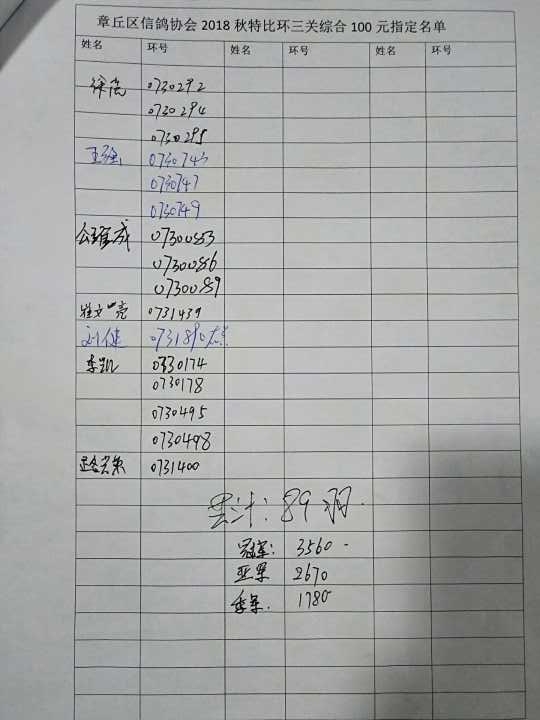 章丘区信鸽协会 2018 秋特比环三关综合 100 元指定名单
姓名 环号 姓名 环号 姓名 环号
徐浩 0730292
0730294
0730295
王强 0730743
0730747
0730749
0730083
0730086
0730089
崔文亮 0731439
刘健 0731890
李凯 0730174
0730178
0730495
0730498
0731400
共计: 89 羽.
冠军: 3560
亚军 2670
季军. 1780